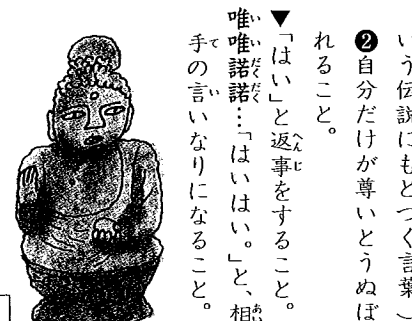 いう伝説にもとづく言葉）
❷自分だけが尊いとうぬぼ
れること。
▼「はい」と返事をすること。
唯唯諾諾…「はいはい。」と、相
手の言いなりになること。